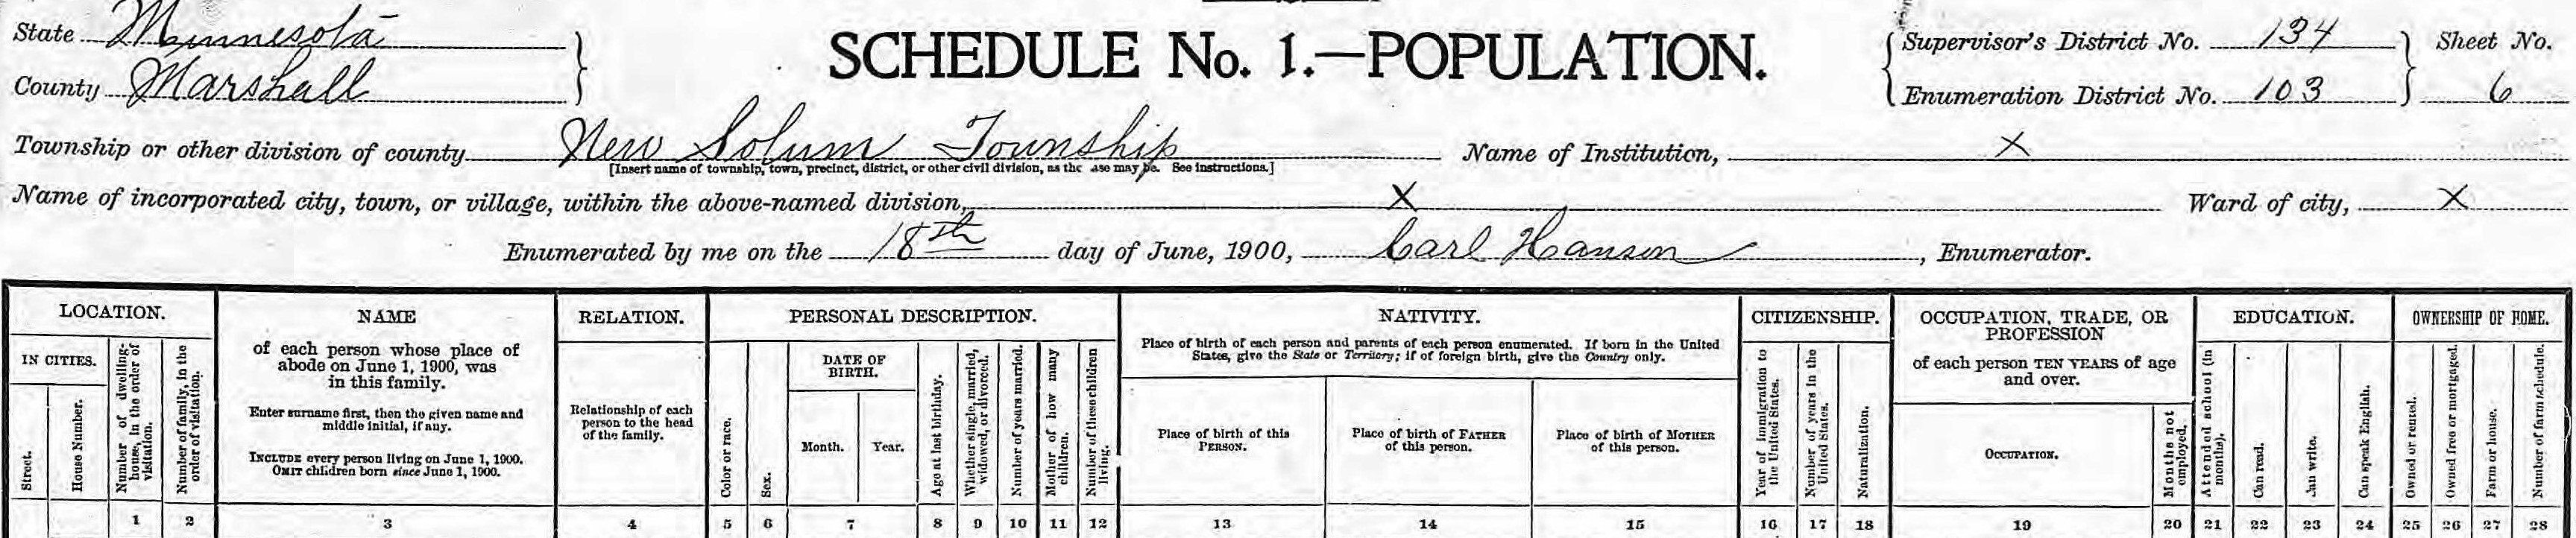 State Minnesota
County Marshall
SCHEDULE No. 1.—POPULATION.
Supervisor's District No. 134
Enumeration District No. 103
Sheet No.
6
Township or other division of county New Solum Township
[Insert name of township, town, precinct, district, or other civil division, as the case may be. See instructions.]
Name of Institution, X
Name of incorporated city, town, or village, within the above-named division, X
Ward of city, X
Enumerated by me on the 18th day of June, 1900, Carl Hanson, Enumerator.
LOCATION.
IN CITIES.
Street.
House Number.
Number of dwelling-house, in the order of visitation.
Number of family, in the order of visitation.
NAME
of each person whose place of
abode on June 1, 1900, was
in this family.
Enter surname first, then the given name and
middle initial, if any.
INCLUDE every person living on June 1, 1900.
OMIT children born since June 1, 1900.
RELATION.
Relationship of each
person to the head
of the family.
PERSONAL DESCRIPTION.
Color or race.
Sex.
DATE OF
BIRTH.
Month.
Year.
Age at last birthday.
Whether single, married, widowed, or divorced.
Number of years married.
Mother of how many children.
Number of these children living.
NATIVITY.
Place of birth of each person and parents of each person enumerated. If born in the United
States, give the State or Territory; if of foreign birth, give the Country only.
Place of birth of this
PERSON.
Place of birth of FATHER
of this person.
Place of birth of MOTHER
of this person.
CITIZENSHIP.
Year of immigration to the United States.
Number of years in the United States.
Naturalization.
OCCUPATION, TRADE, OR
PROFESSION
of each person TEN YEARS of age
and over.
OCCUPATION.
Months not employed.
EDUCATION.
Attended school (in months).
Can read.
Can write.
Can speak English.
OWNERSHIP OF HOME.
Owned or rented.
Owned free or mortgaged.
Farm or house.
Number of farm schedule.
1 2 3 4 5 6 7 8 9 10 11 12 13 14 15 16 17 18 19 20 21 22 23 24 25 26 27 28